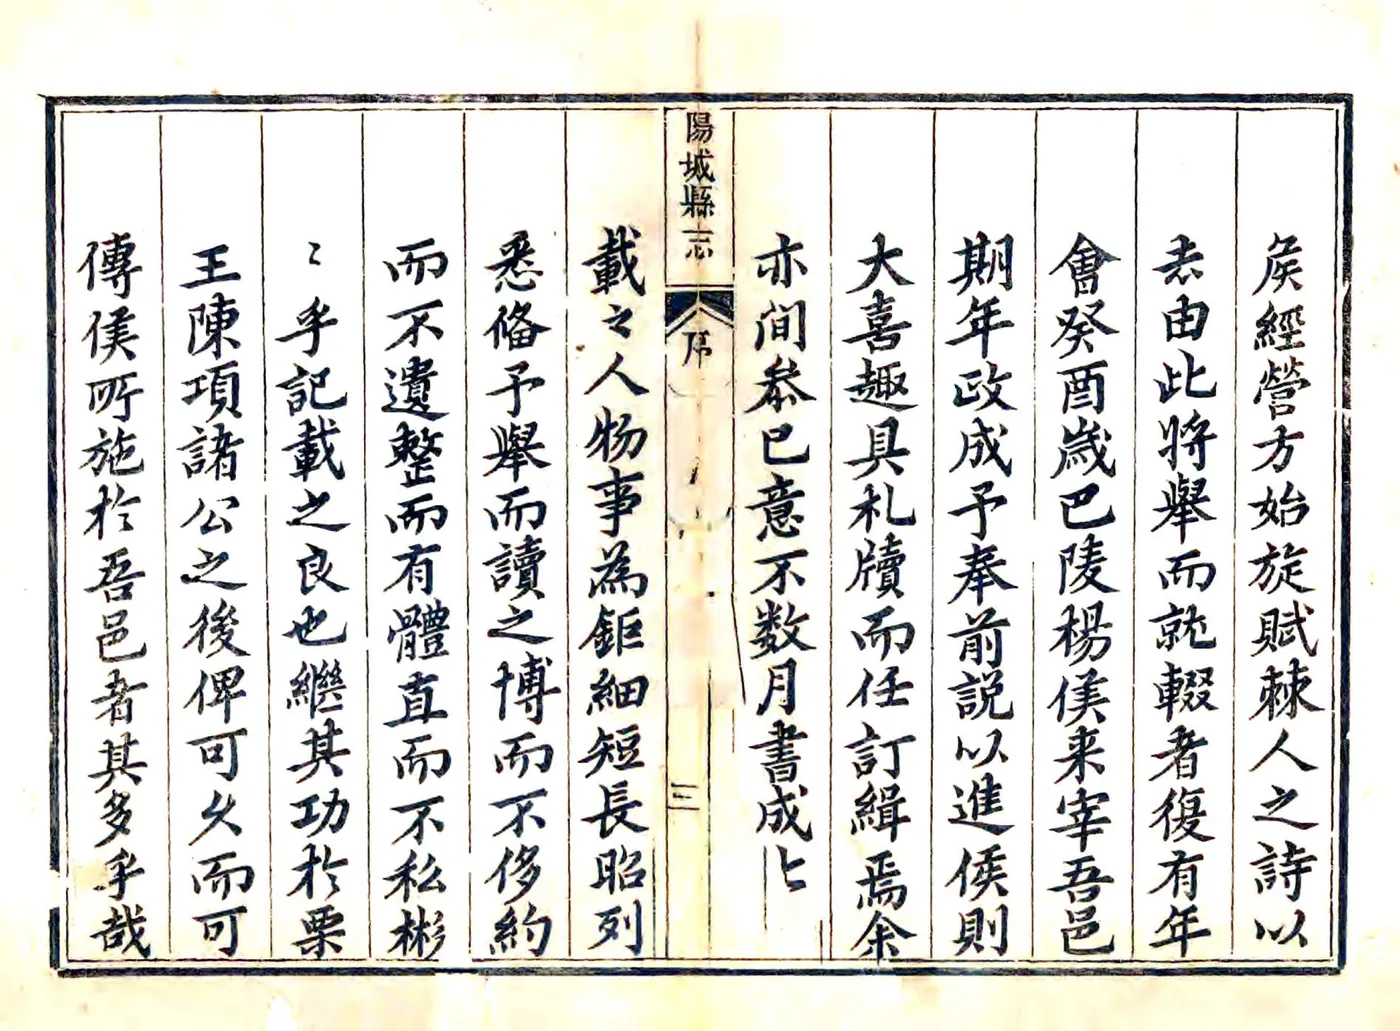 矦經營方始旋賦棘人之詩以
志由此將舉而就輟者復有年
會癸酉歲巴陵楊侯来宰吾邑
期年政成予奉前説以進侯則
大喜趣具札牘而任訂緝焉余
亦间叅已意不数月書成上
陽城縣志
序
三
載之人物事為鉅細短長昭列
悉俻予舉而讀之博而不侈約
而不遺整而有體直而不私彬
〻乎記載之良也繼其功於栗
王陳項諸公之後俾可久而可
傳侯所施於吾邑者其多乎哉